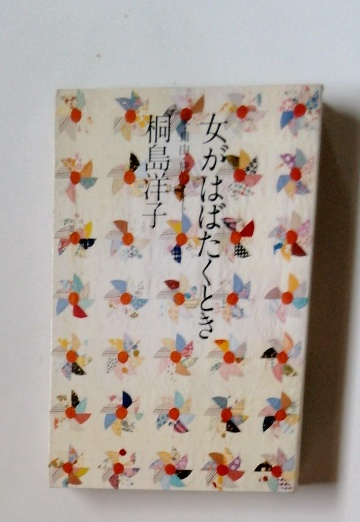 女がはばたくとき
桐島洋子